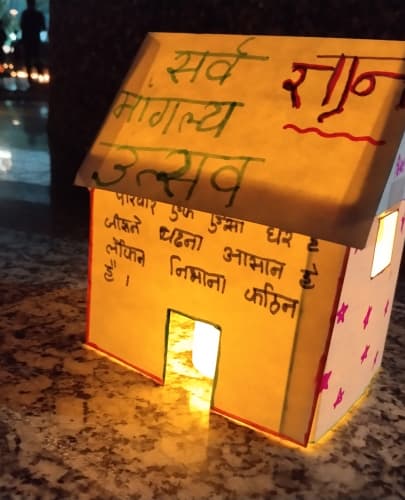 सर्व
मांगल्य
उत्सव
ज्ञान
परिवार एक ऐसा घर है
जीसने चढना आसान है
लेकिन निभाना कठिन
है।